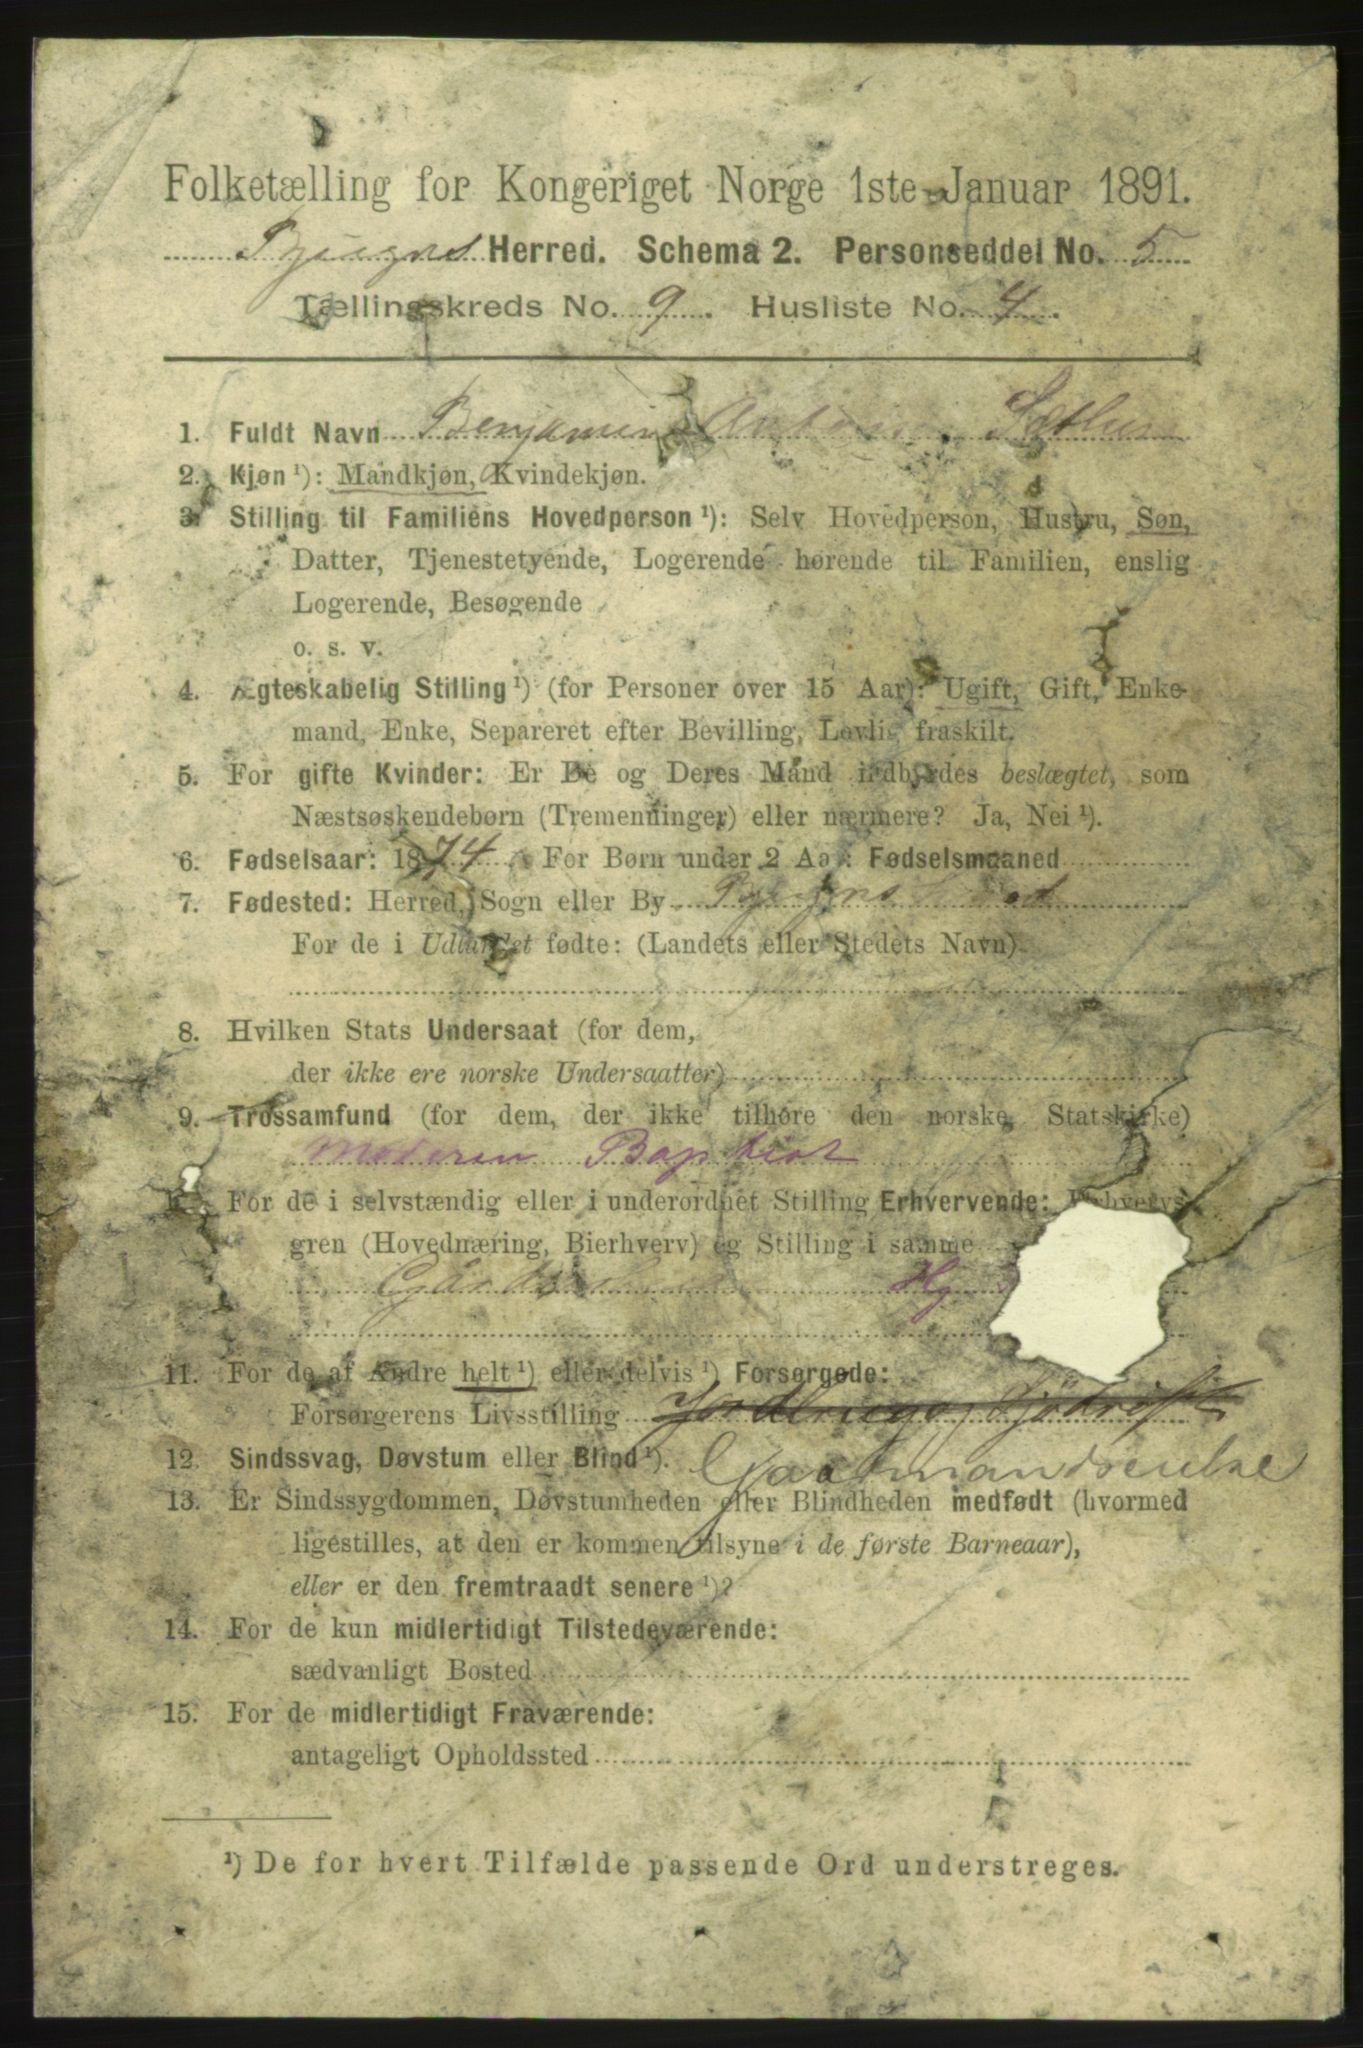 Folketælling for Kongeriget Norge 1ste Januar 1891.
Bjugns Herred. Schema 2. Personseddel No. 5
Tællingskreds No. 9. Husliste No. 4.
1. Fuldt Navn Benjamin Anton
2. Kjøn ¹): Mandkjøn, Kvindekjøn.
3. Stilling til Familiens Hovedperson ¹): Selv Hovedperson, Hustru, Søn,
Datter, Tjenestetyende, Logerende hørende til Familien, enslig
Logerende, Besøgende
o. s. v.
4. Ægteskabelig Stilling ¹) (for Personer over 15 Aar): Ugift, Gift, Enke-
mand, Enke, Separeret efter Bevilling, Lovlig fraskilt.
5. For gifte Kvinder: Er De og Deres Mand indbyrdes beslægtet, som
Næstsøskendebørn (Tremenninger) eller nærmere? Ja, Nei ¹).
6. Fødselsaar: 1874. For Børn under 2 Aar: Fødselsmaaned
7. Fødested: Herred, Sogn eller By Bjugns
For de i Udlandet fødte: (Landets eller Stedets Navn)
8. Hvilken Stats Undersaat (for dem,
der ikke ere norske Undersaatter)
9. Trossamfund (for dem, der ikke tilhøre den norske Statskirke)
Moderen Baptist
10. For de i selvstændig eller i underordnet Stilling Erhvervende: Erhvervs-
gren (Hovednæring, Bierhverv) og Stilling i samme
Hg
11. For de af Andre helt ¹) eller delvis ¹) Forsørgede:
Forsørgerens Livsstilling Jordbrug og Sjødrift
12. Sindssvag, Døvstum eller Blind ¹). Gaardmandsenke
13. Er Sindssygdommen, Døvstumheden eller Blindheden medfødt (hvormed
ligestilles, at den er kommen tilsyne i de første Barneaar),
eller er den fremtraadt senere ¹)?
14. For de kun midlertidigt Tilstedeværende:
sædvanligt Bosted
15. For de midlertidigt Fraværende:
antageligt Opholdssted
¹) De for hvert Tilfælde passende Ord understreges.